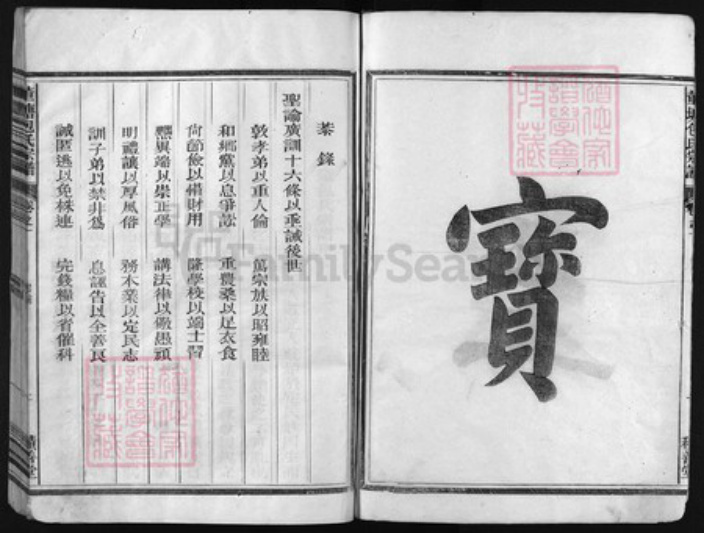 寶
積善堂
猶他家
譜學會
特藏
恭錄
聖諭廣訓十六條以垂誡後世
敦孝弟以重人倫 篤宗族以昭雍睦
和鄉黨以息爭訟 重農桑以足衣食
尚節儉以惜財用 隆學校以端士習
黜異端以崇正學 講法律以儆愚頑
明禮讓以厚風俗 務本業以定民志
訓子弟以禁非爲 息誣告以全善良
誡匿逃以免株連 完錢糧以省催科
積善堂
猶他家
譜學會
特藏
FamilySear